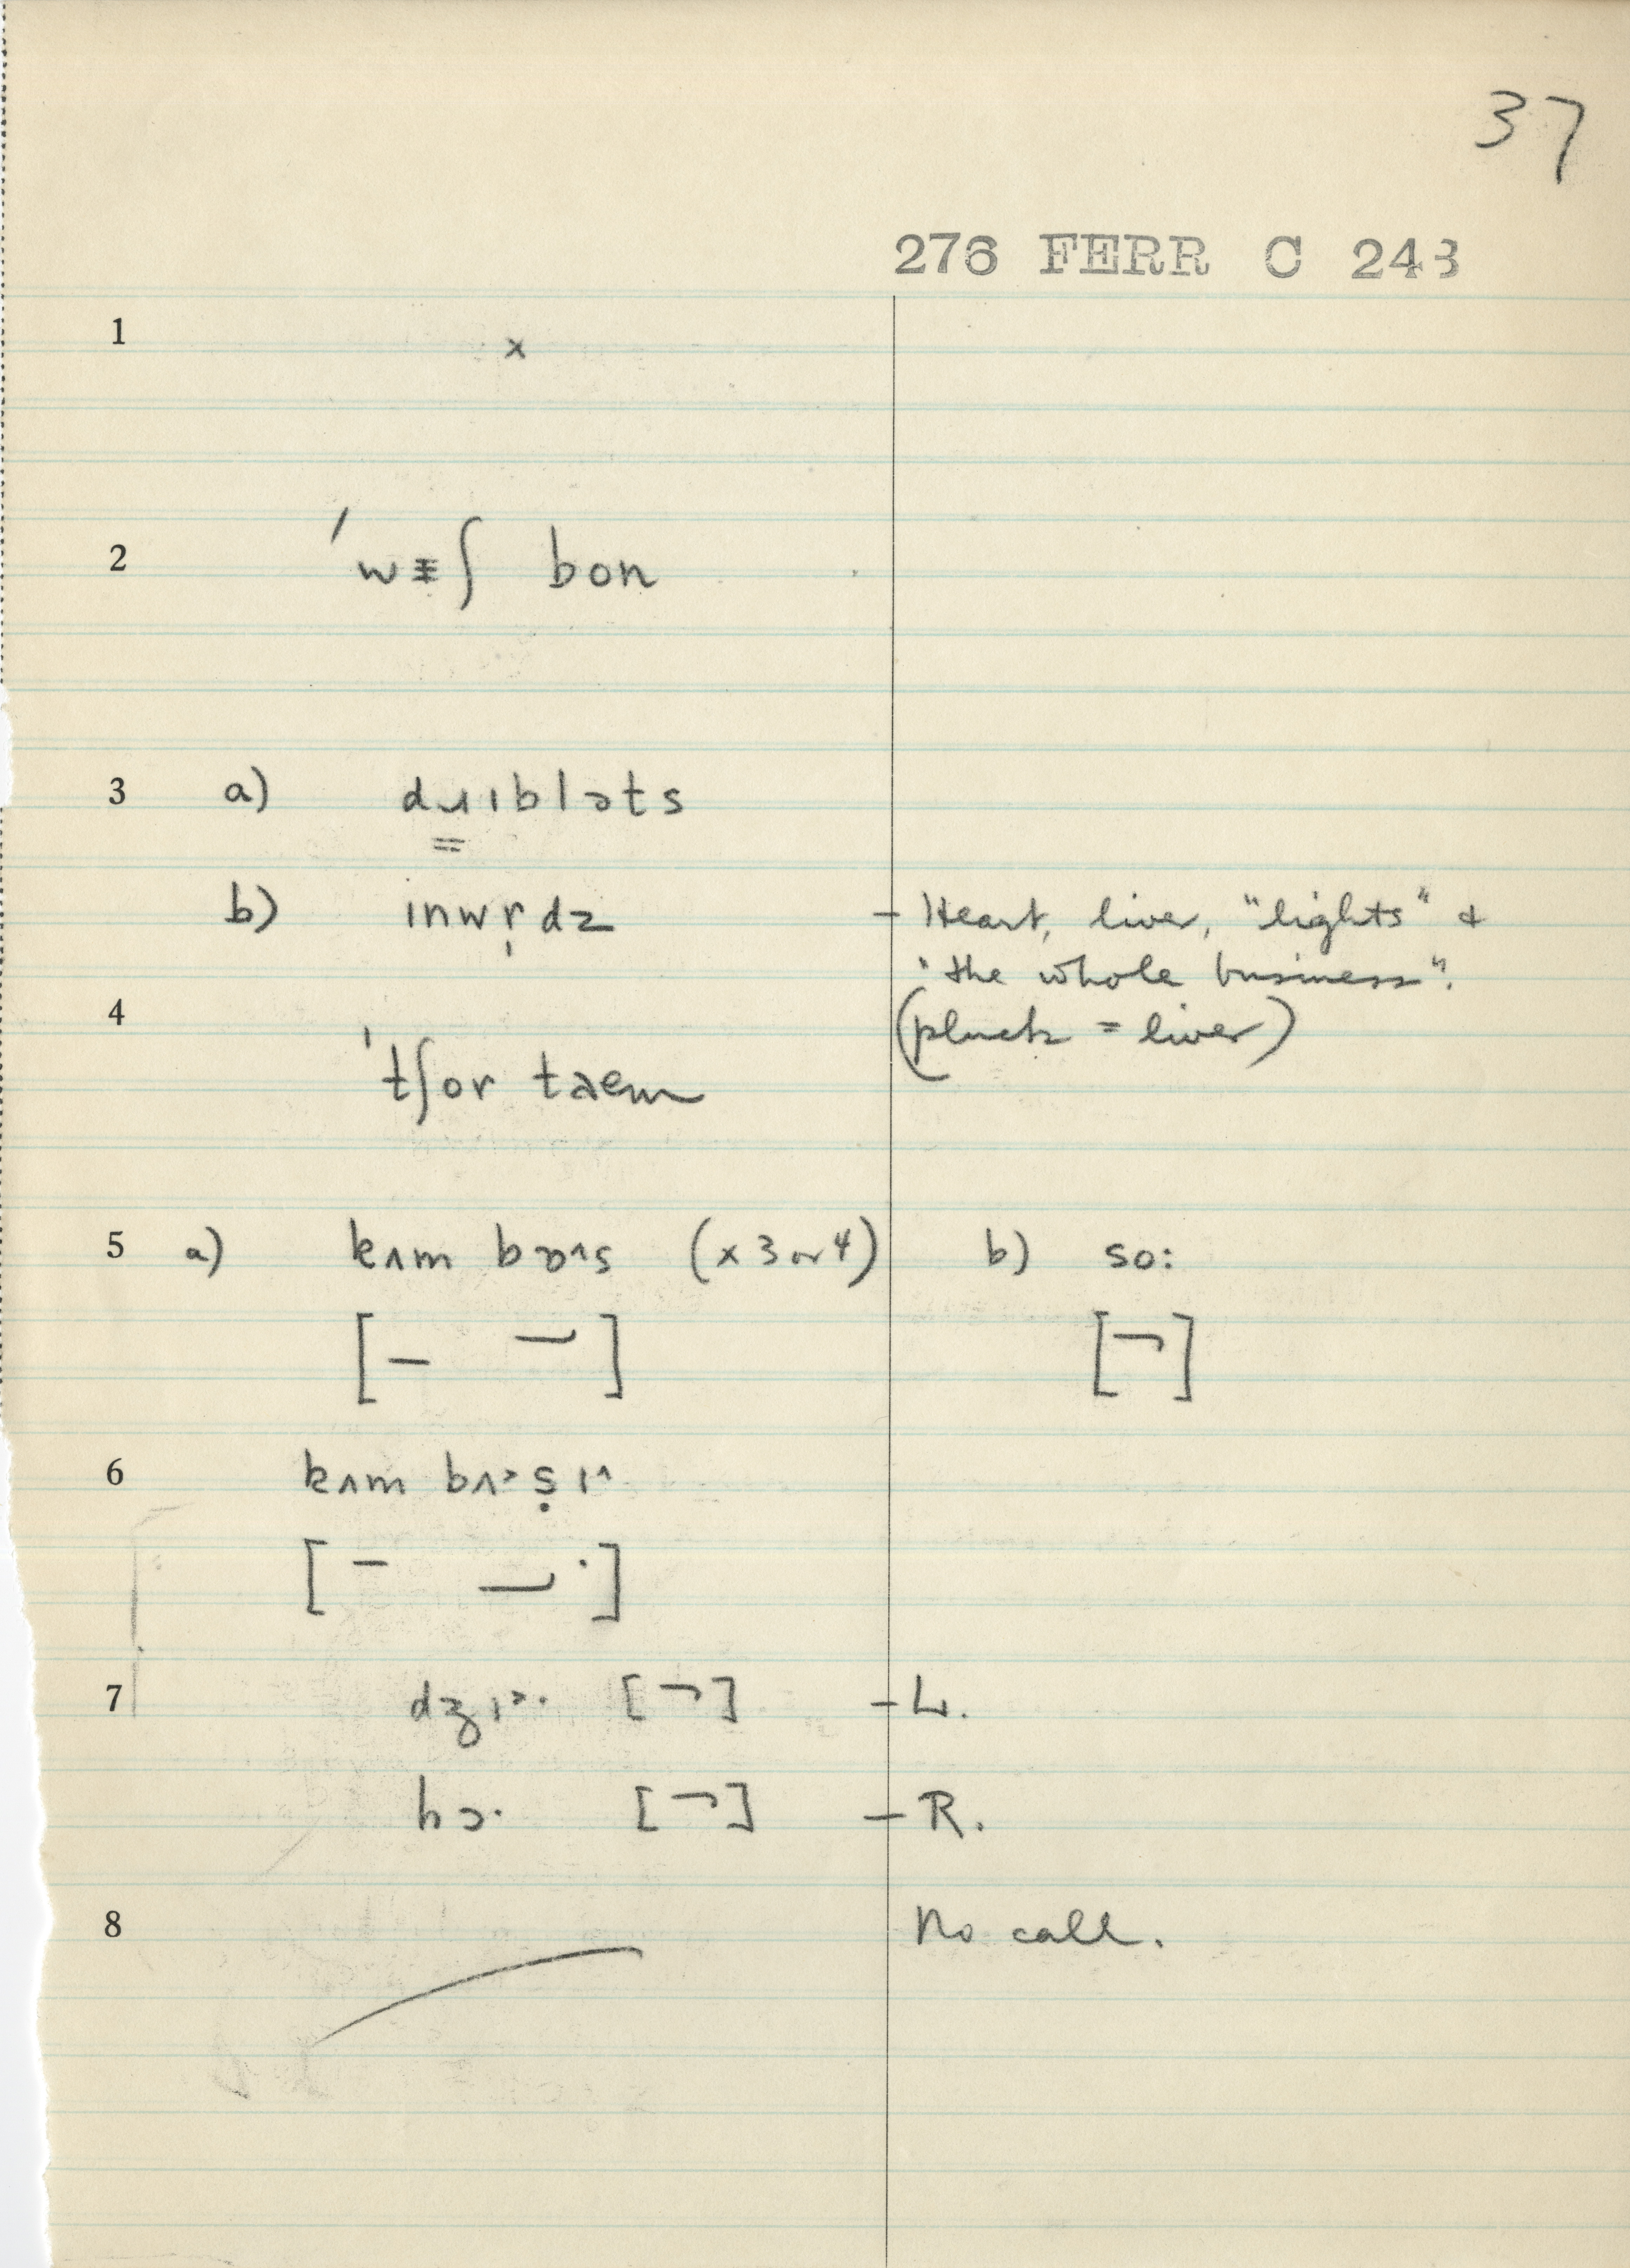 37
276 FERR C 243
1 x
2 ˈwᵻʃ bon
3 a) dɹɪbləts
b) ɪnwr̩dz – Heart, liver, "lights" &
"the whole business".
4 (pluck = liver)
ˈtʃor taem
5 a) kʌm bɒ^s (x 3 or 4) b) so:
[– –] [¬]
6 kʌm bʌ˃ṣɪ^
[– – ·]
7 dʒɪ˃· [¬] – L.
hɔ· [¬] – R.
8 No call.